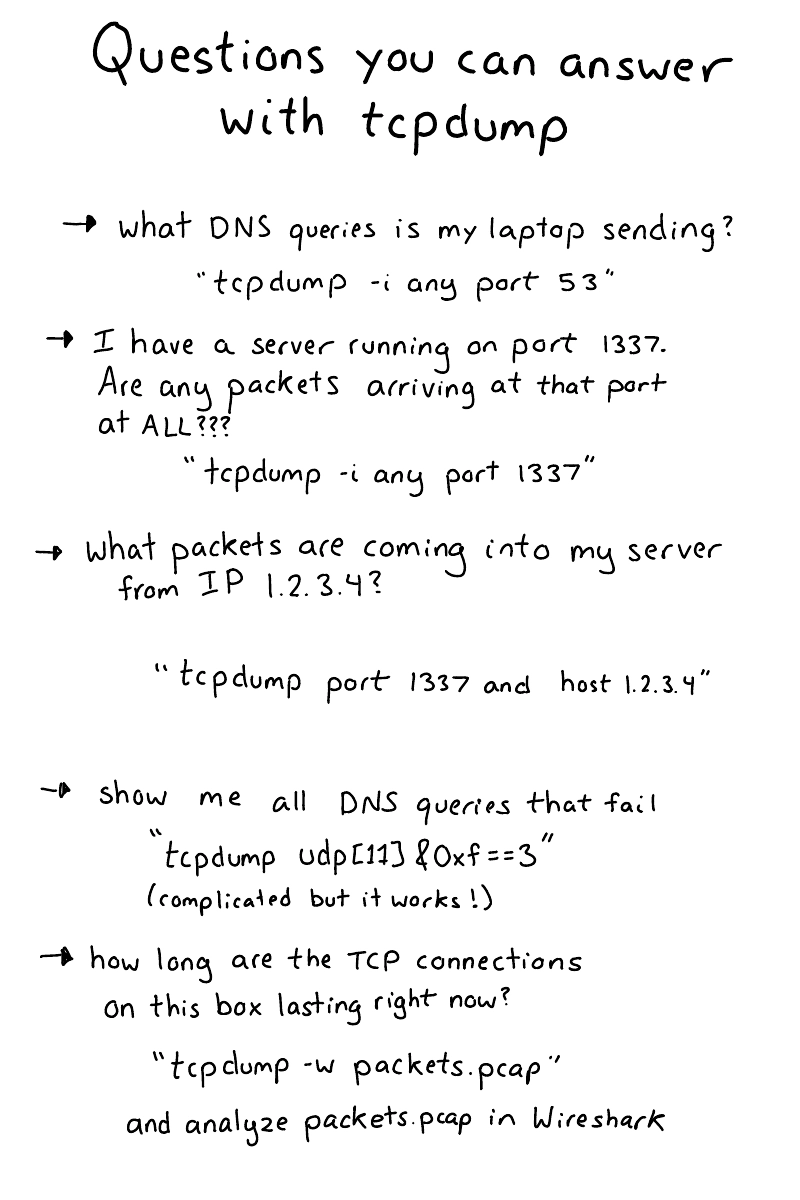 Questions you can answer
with tcpdump
→ what DNS queries is my laptop sending?
"tcpdump -i any port 53"
→ I have a server running on port 1337.
Are any packets arriving at that port
at ALL???
"tcpdump -i any port 1337"
→ what packets are coming into my server
from IP 1.2.3.4?
"tcpdump port 1337 and host 1.2.3.4"
→ show me all DNS queries that fail
"tcpdump udp[11] & 0xf==3"
(complicated but it works!)
→ how long are the TCP connections
on this box lasting right now?
"tcpdump -w packets.pcap"
and analyze packets.pcap in Wireshark